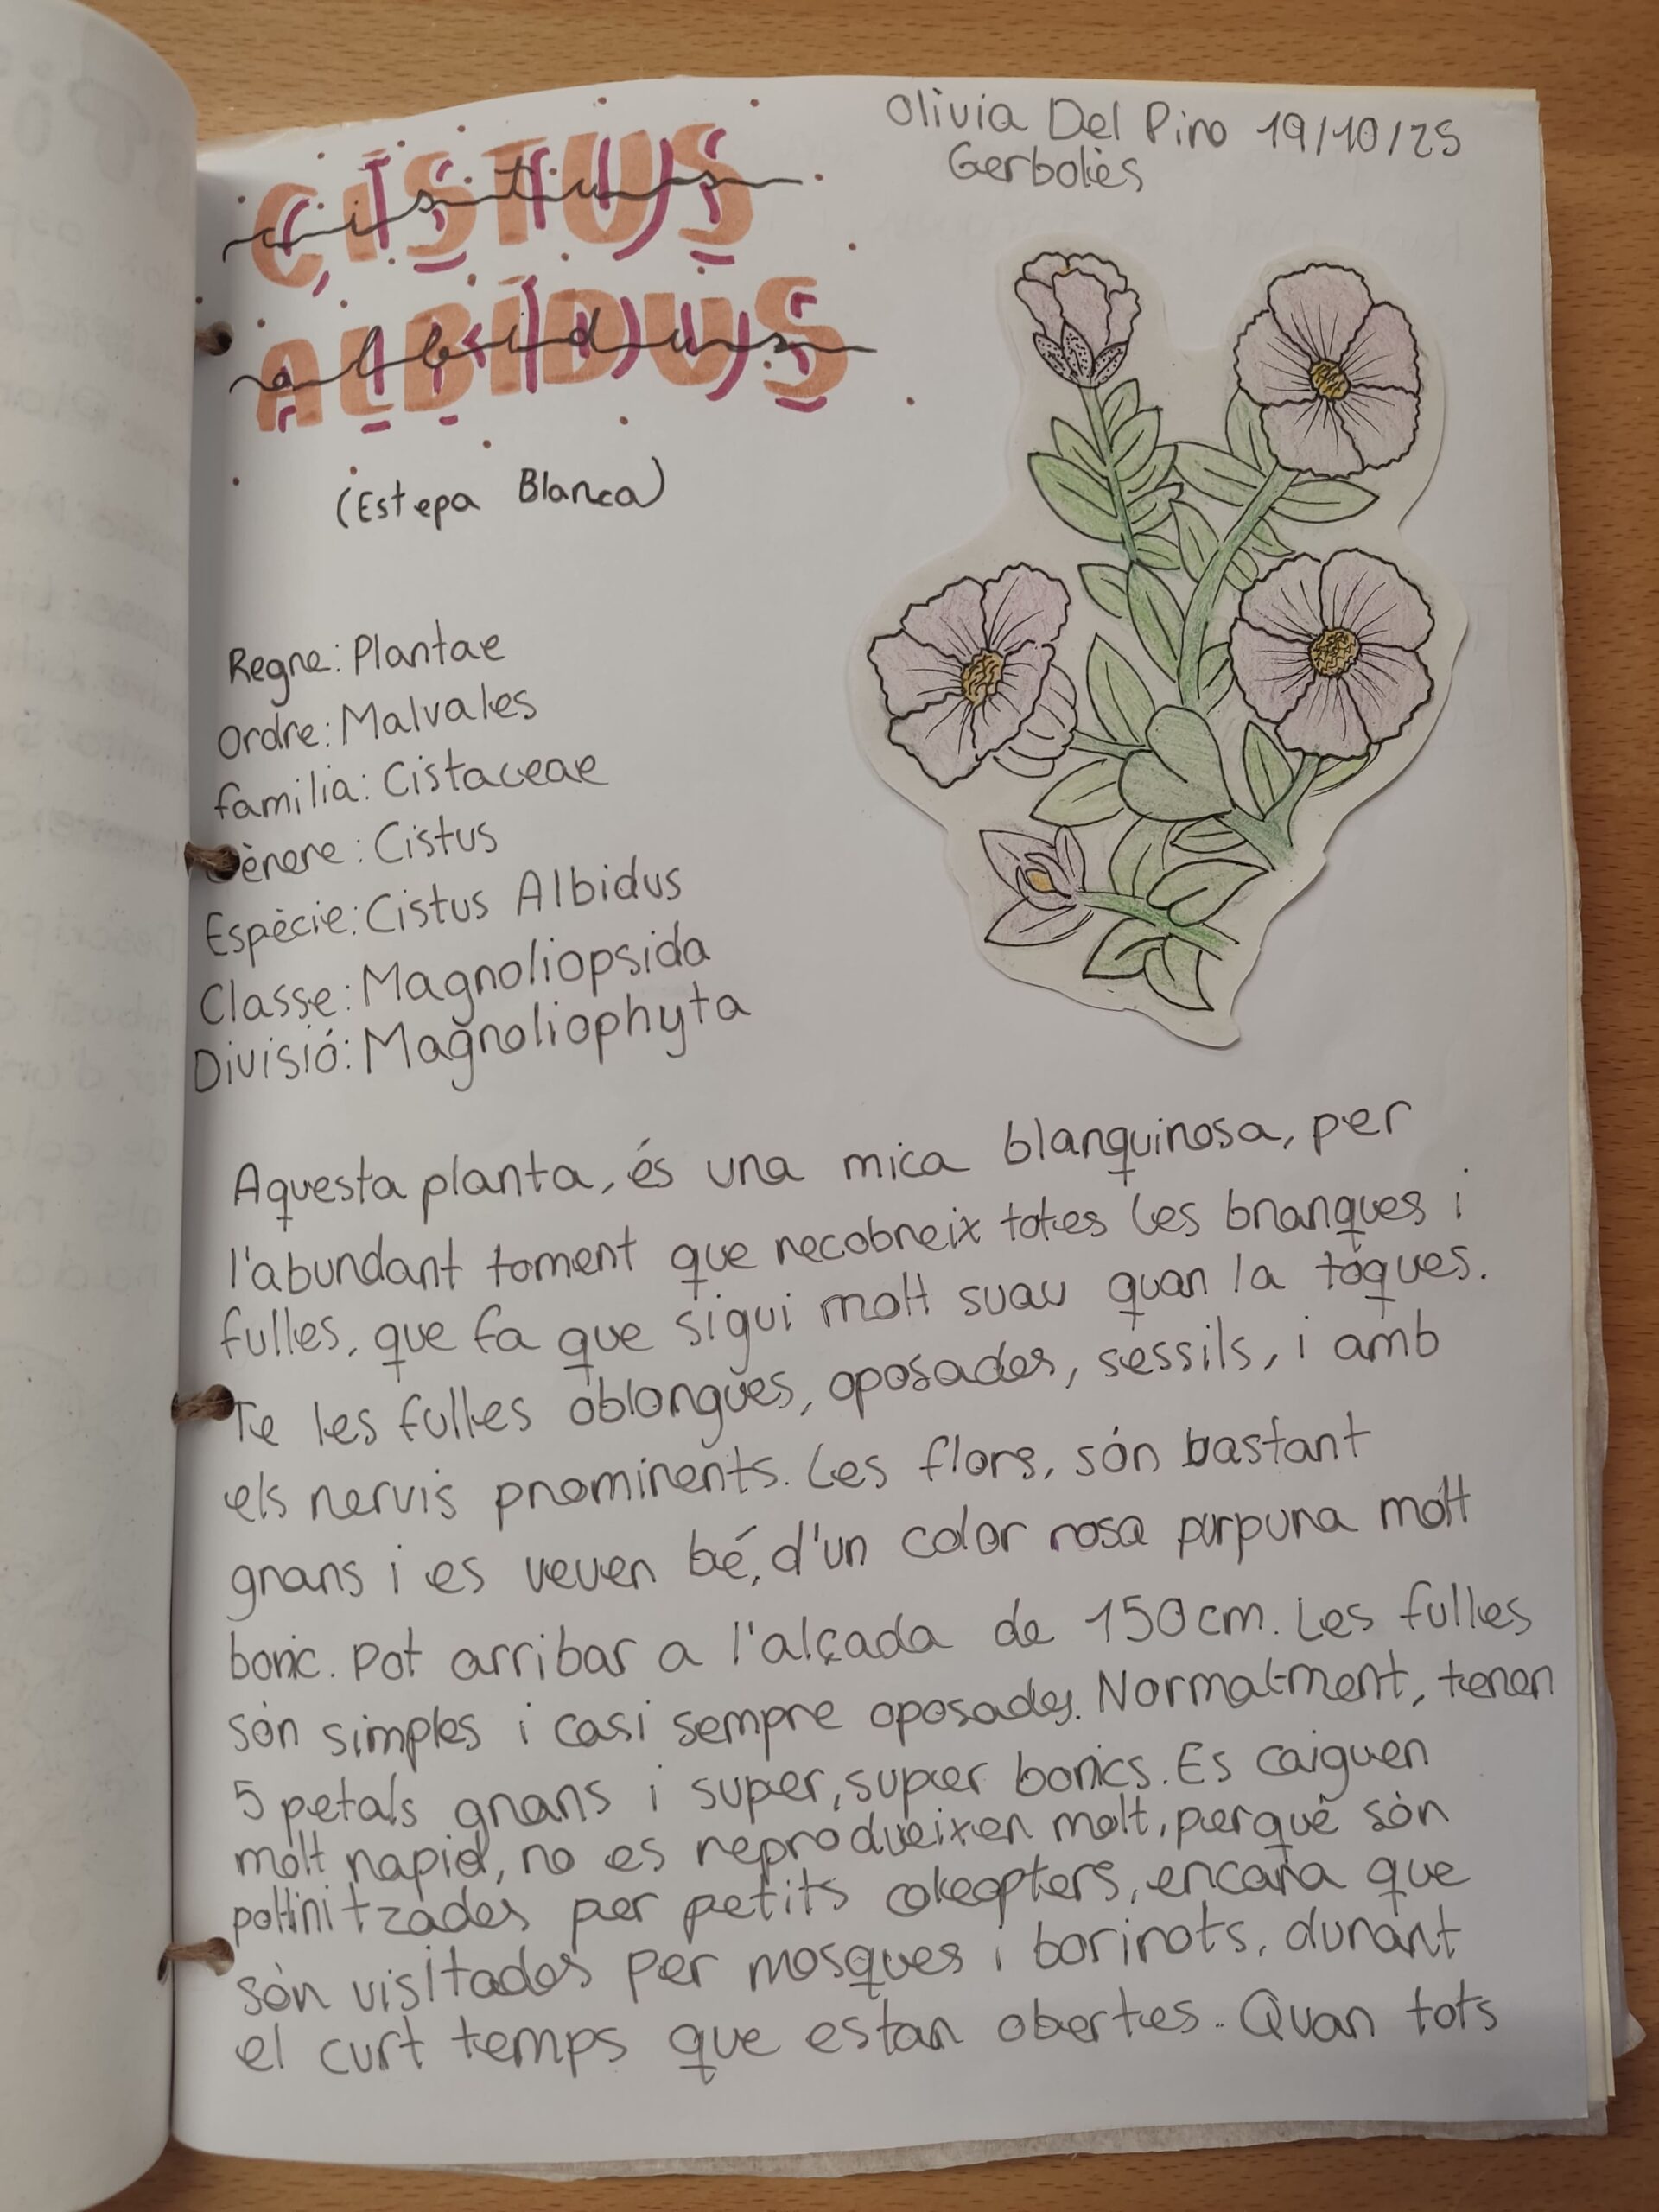 CISTUS
cistus
ALBIDUS
albidus
Olivia Del Pino 19/10/25
Gerbolés
(Estepa Blanca)
Regne: Plantae
Ordre: Malvales
familia: Cistaceae
Gènere: Cistus
Espècie: Cistus Albidus
Classe: Magnoliopsida
Divisió: Magnoliophyta
Aquesta planta, és una mica blanquinosa, per
l'abundant toment que recobreix totes les branques i
fulles, que fa que sigui molt suau quan la toques.
Te les fulles oblongues, oposades, sessils, i amb
els nervis prominents. Les flors, són bastant
grans i es veuen bé, d'un color rosa purpura molt
bonic. Pot arribar a l'alçada de 150cm. Les fulles
són simples i casi sempre oposades. Normalment, tenen
5 petals grans i super, super bonics. Es caiguen
molt rapid, no es reprodueixen molt, perquè són
pol·linitzades per petits coleopters, encara que
són visitades per mosques i borinots, durant
el curt temps que estan obertes. Quan tots